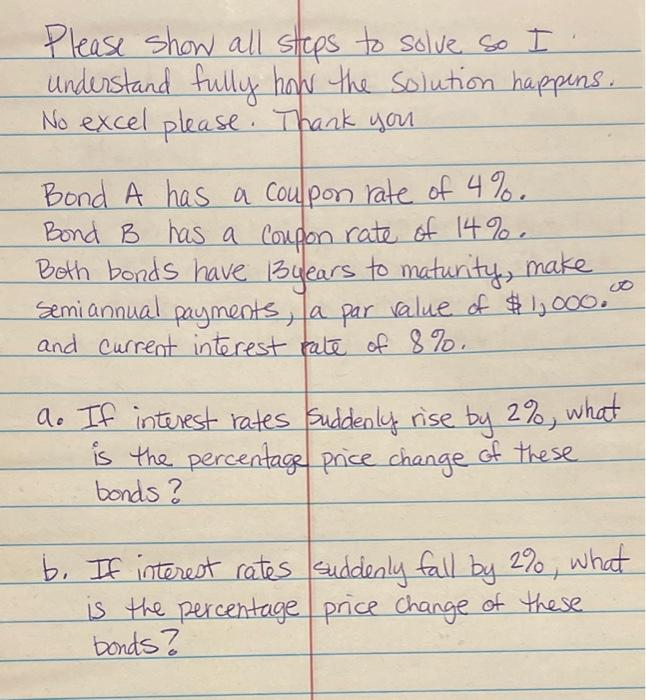 Please show all steps to solve so I
understand fully how the solution happens.
No excel please. Thank you
Bond A has a coupon rate of 4%.
Bond B has a coupon rate of 14%.
Both bonds have 13 years to maturity, make
semiannual payments, a par value of $1,000.00
and current interest rate of 8%.
a. If interest rates suddenly rise by 2%, what
is the percentage price change of these
bonds?
b. If interest rates suddenly fall by 2%, what
is the percentage price change of these
bonds?